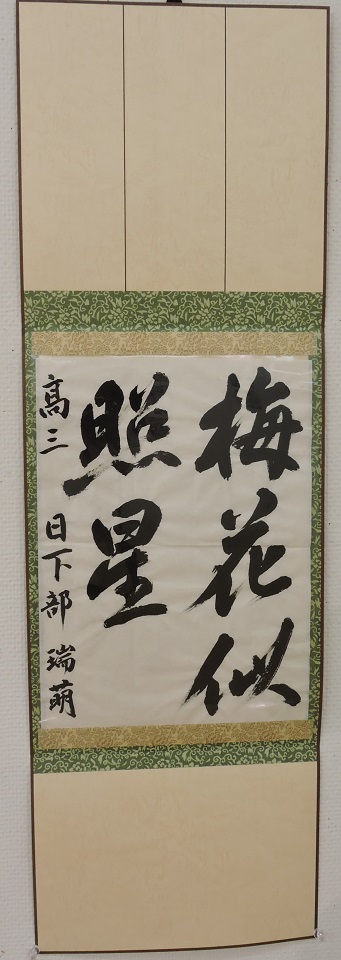 梅花似
照星
高三 日下部 瑞萌